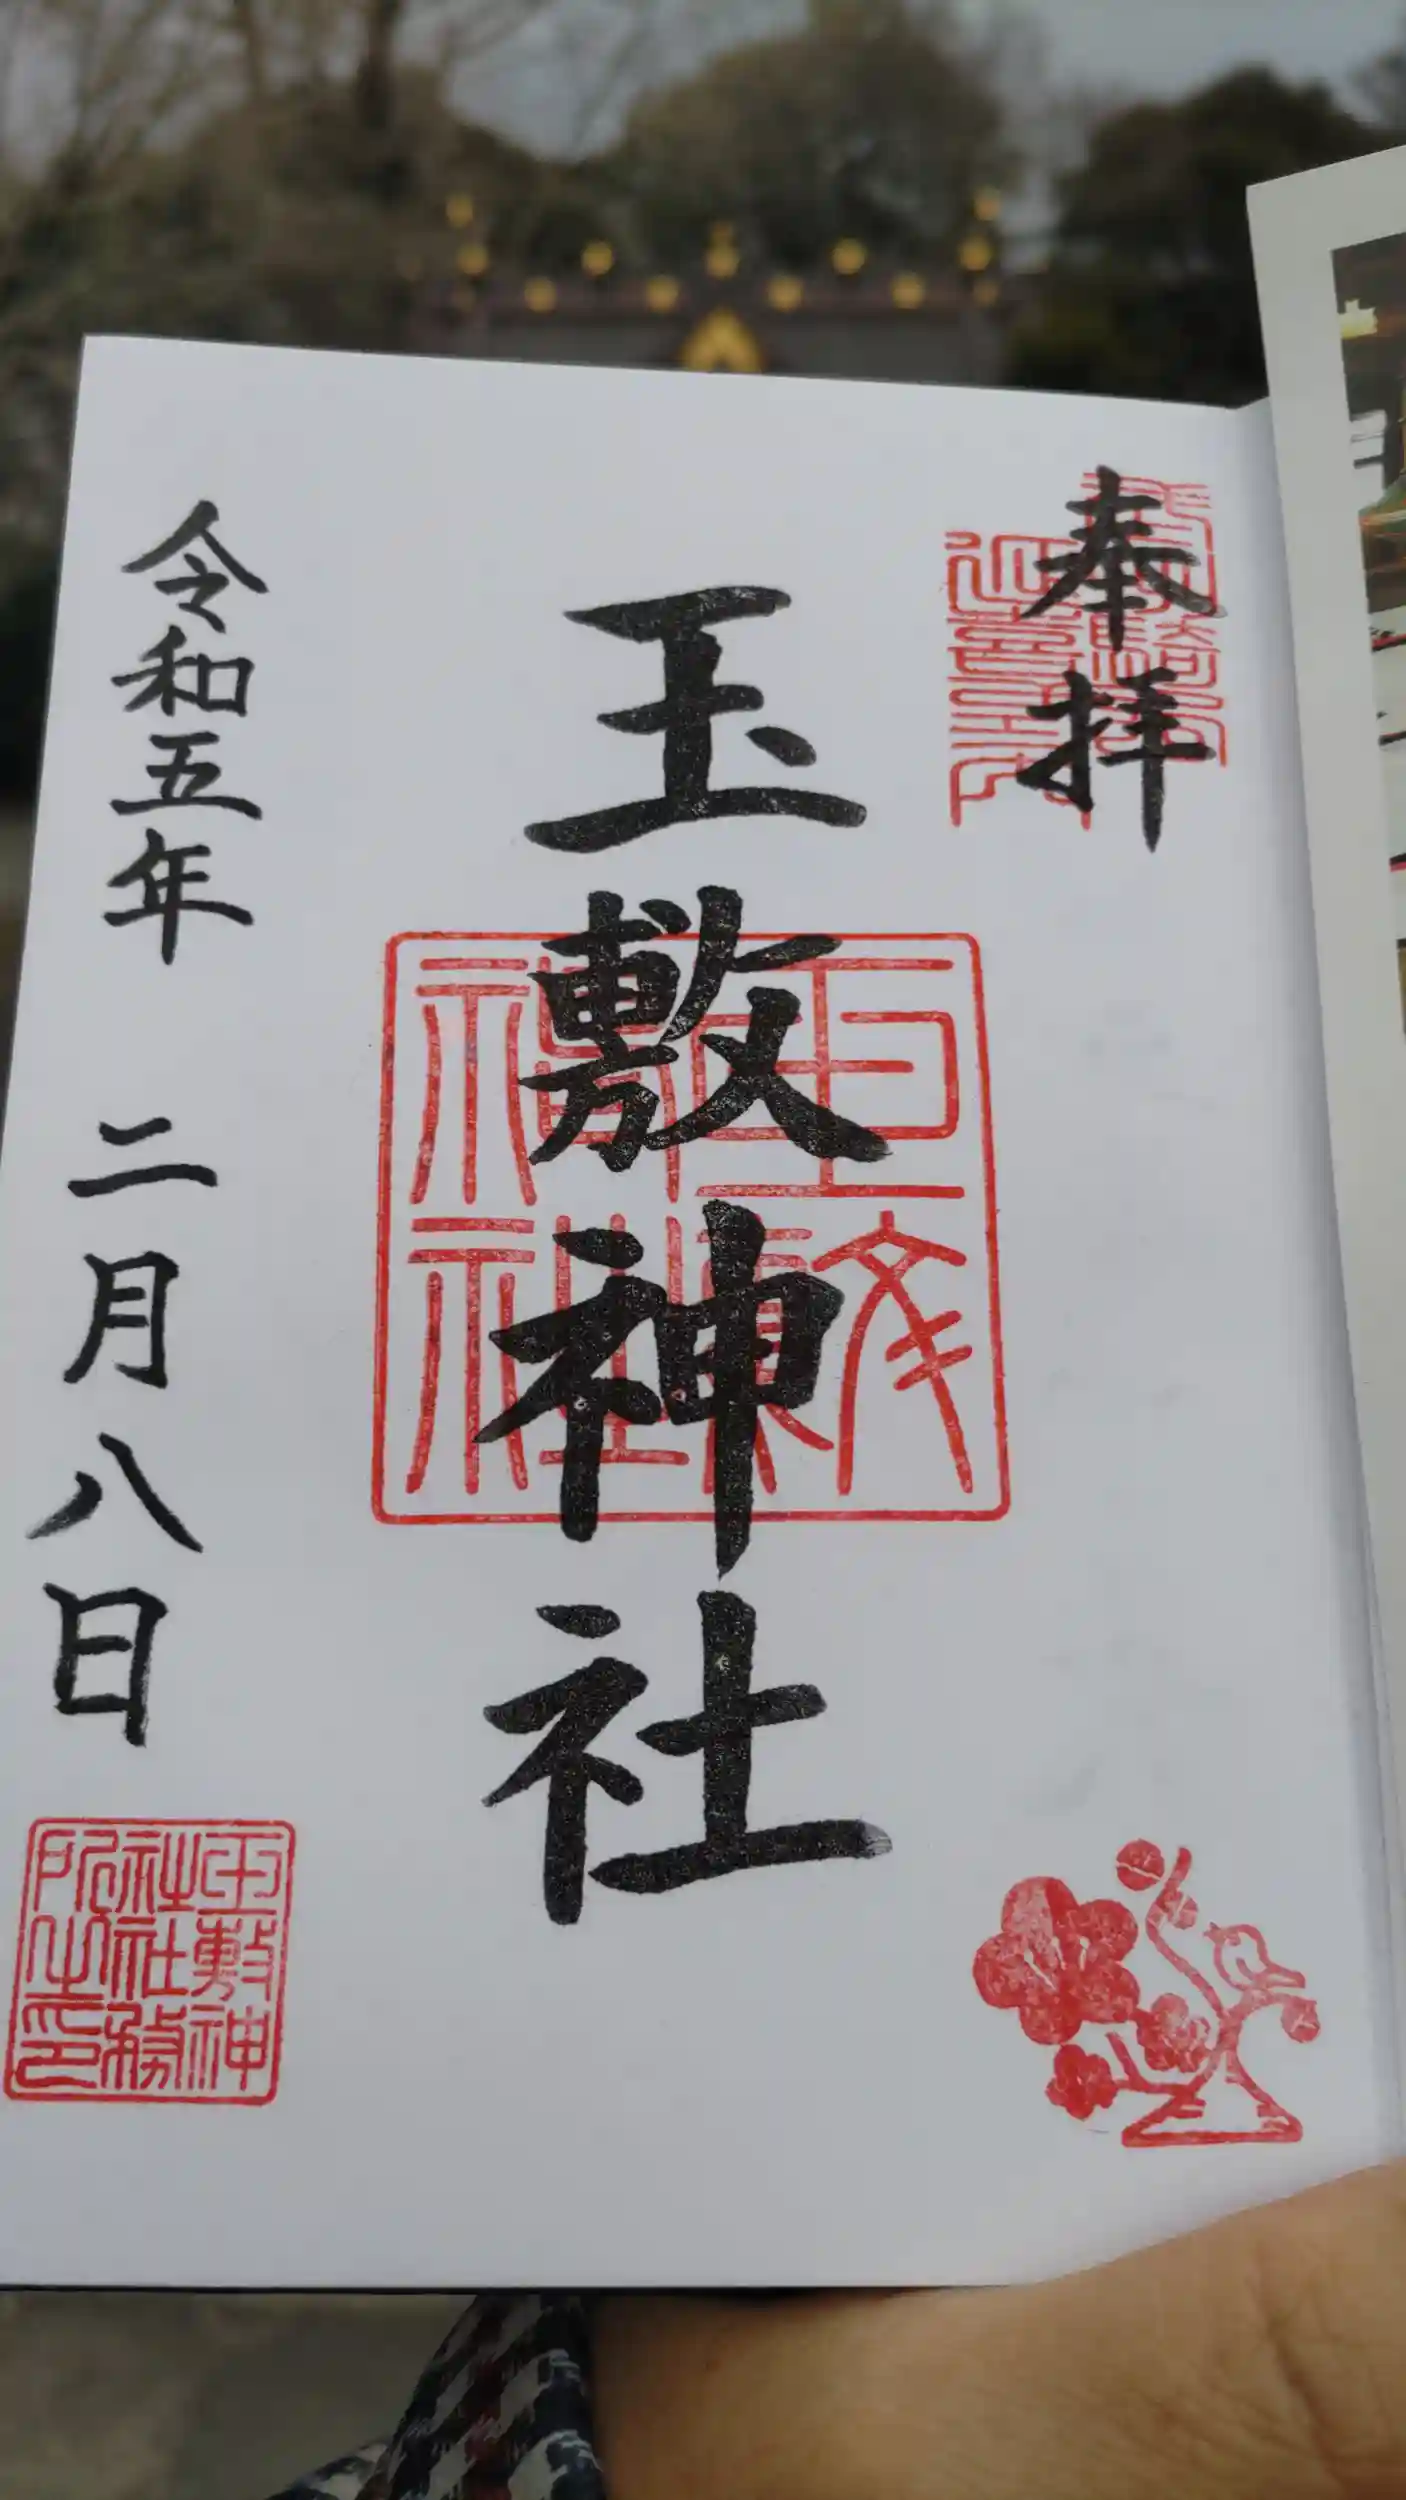 奉拝
玉敷神社
令和五年 二月八日
玉敷神
社社務
所之印